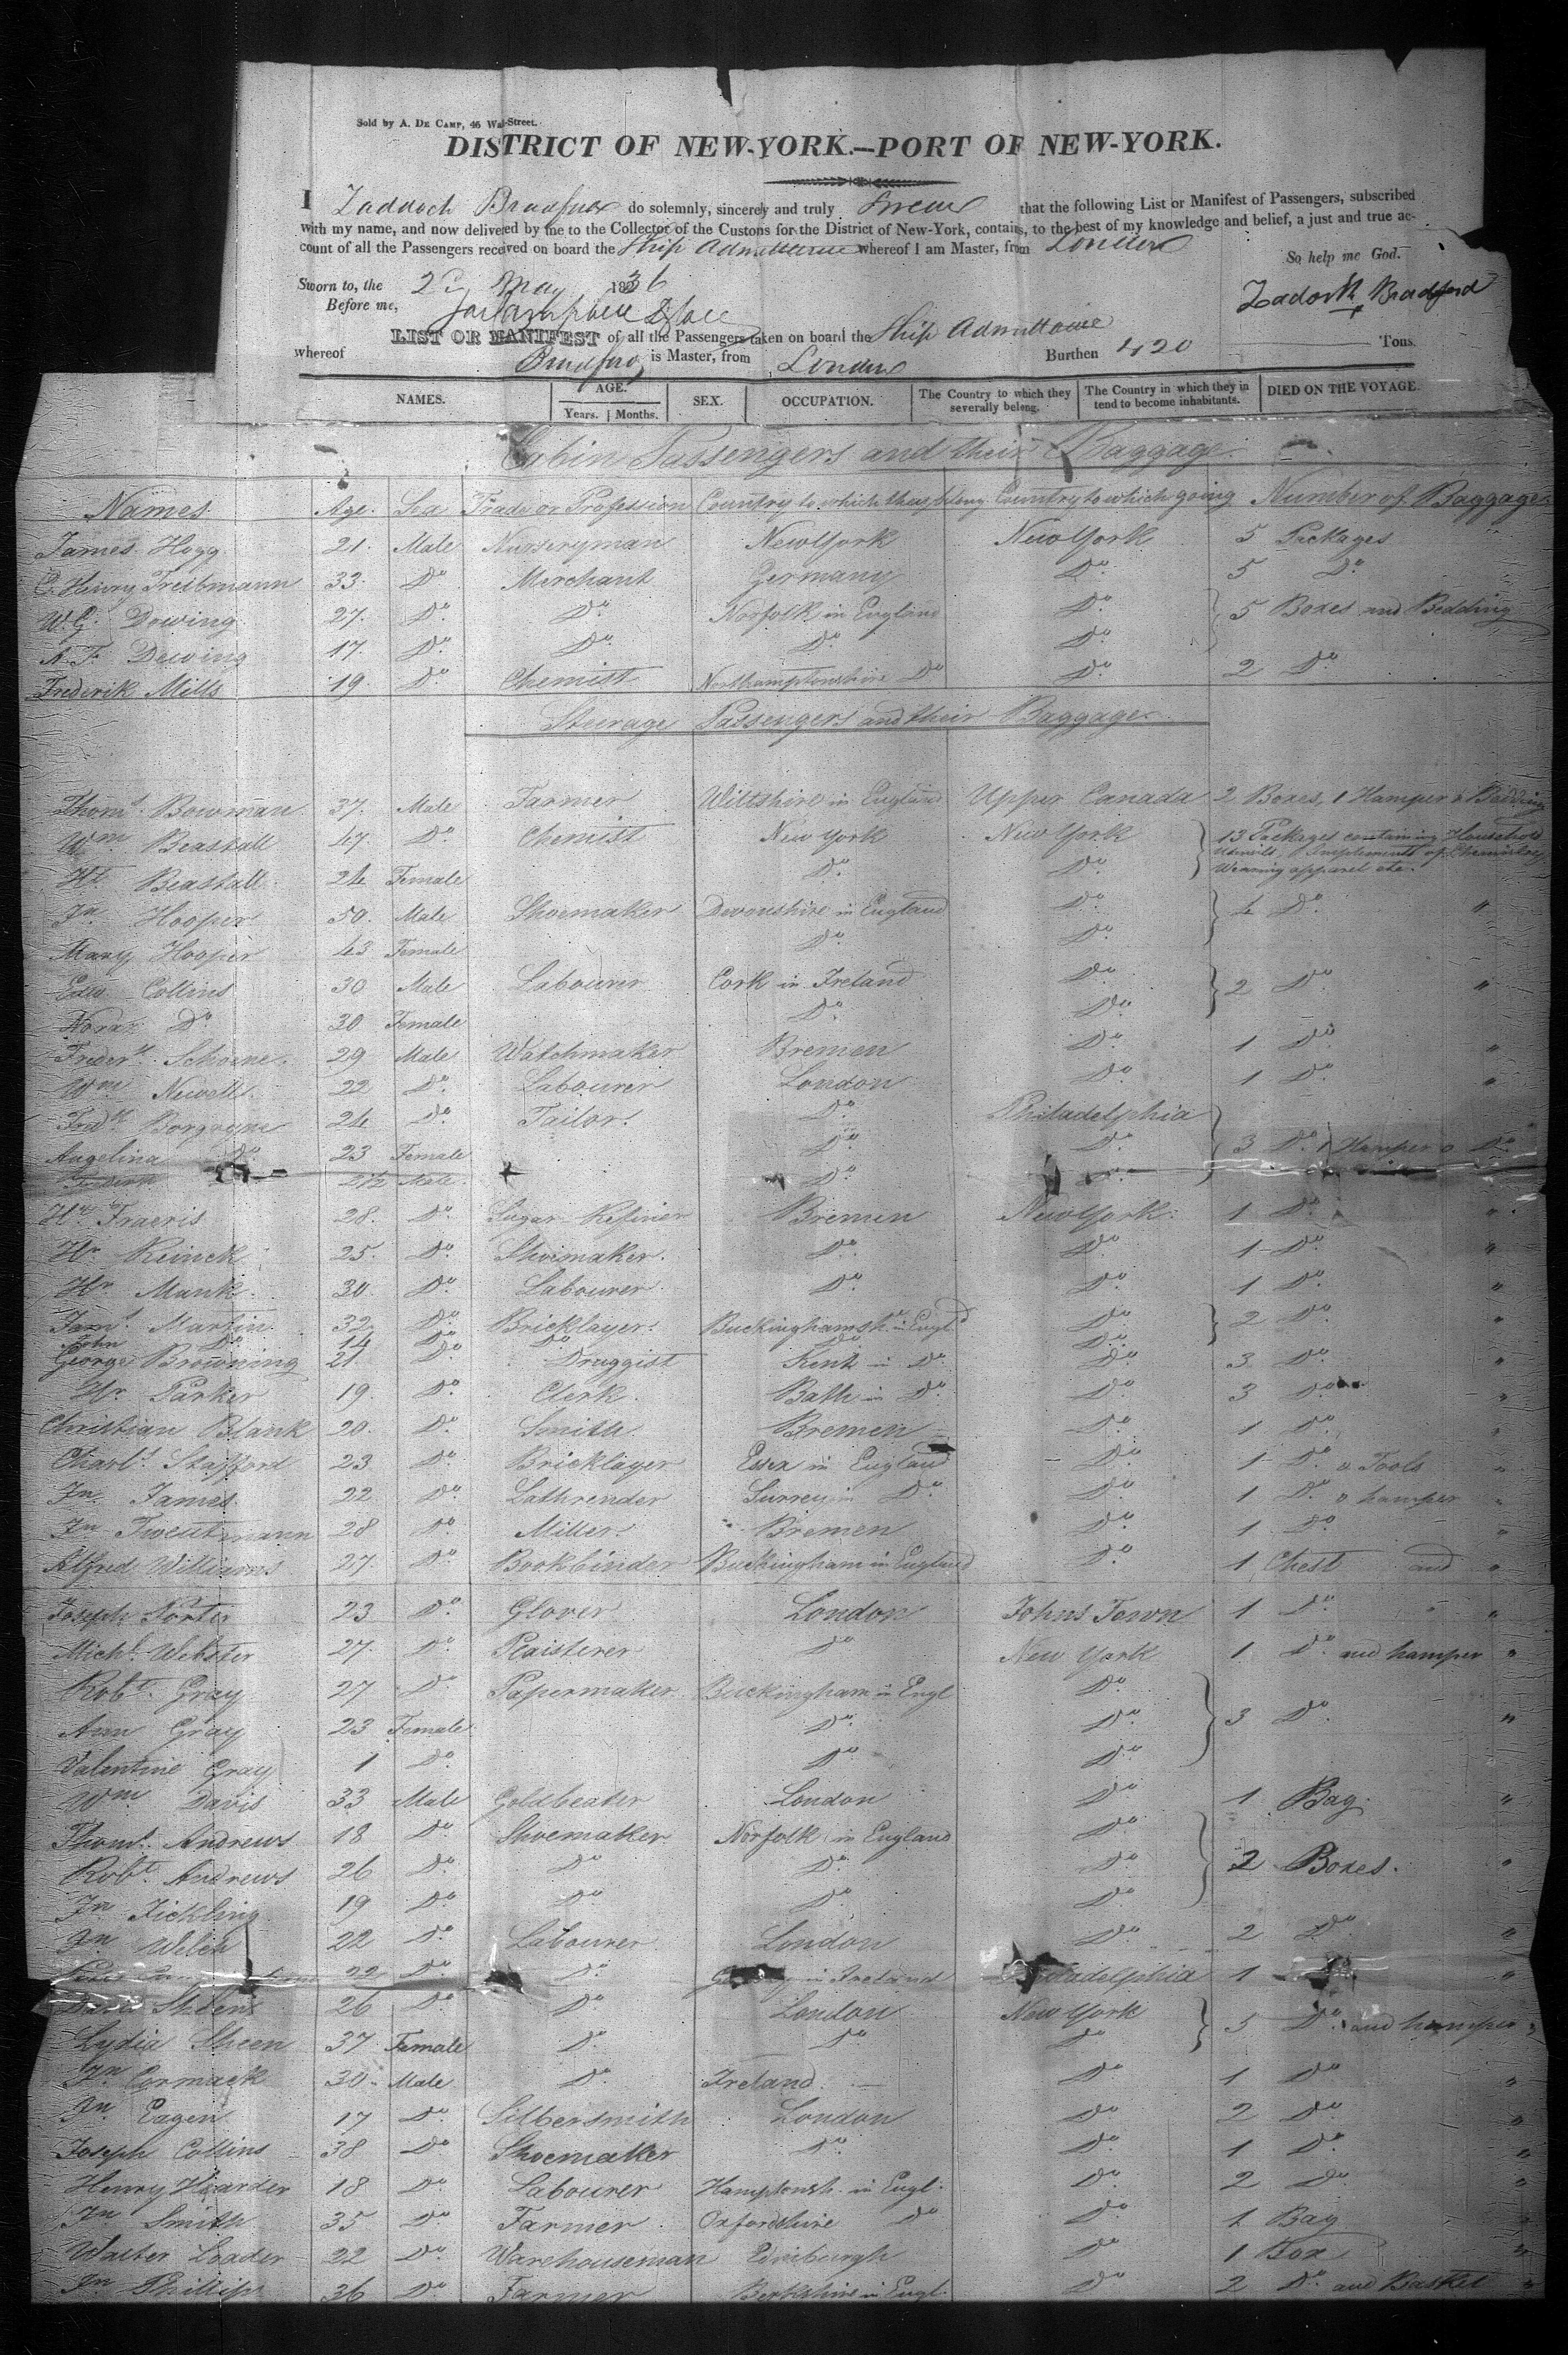 Sold by A. De Camp, 46 Wall-Street.
DISTRICT OF NEW-YORK.—PORT OF NEW-YORK.
I Zaddock Bradford do solemnly, sincerely and truly Swear that the following List or Manifest of Passengers, subscribed
with my name, and now delivered by me to the Collector of the Custons for the District of New-York, contains, to the best of my knowledge and belief, a just and true ac-
count of all the Passengers received on board the Ship Admittance whereof I am Master, from London
So help me God.
Sworn to, the May 1836
Before me,
Zadock Bradford
LIST OR MANIFEST of all the Passengers taken on board the Ship Admittance
whereof Bradford is Master, from London Burthen 420 Tons.
NAMES. AGE. Years. Months. SEX. OCCUPATION. The Country to which they severally belong. The Country in which they intend to become inhabitants. DIED ON THE VOYAGE.
Cabin Passengers and their Baggage
Names Age. Sex Trade or Profession Country to which they belong Country to which going Number of Baggage
James Hogg 21. Male Nurseryman New York New York 5 Packages
C. Henry Treibmann 33. Do. Merchant Germany Do. 5 Do
W. G. Dewing 27. Do. Do. Norfolk in England Do. 5 Boxes and Bedding
A. F. Dewing 17. Do. Do. Do. Do.
Frederik Mills 19. Do. Chemist Northamptonshire Do Do. 2 Do.
Steerage Passengers and their Baggage
Thoms. Bowman 37. Male Farmer Wiltshire in England Upper Canada 2 Boxes, 1 Hamper & Bedding
Wm Beastall 47. Do. Chemist New York New York 13 Packages containing Household
Utensils, Implements of Chemistry
Wearing apparel etc.
Beastall 24 Female Do. Do.
Jn. Hooper 50. Male Shoemaker Devonshire in England Do. 4 Do. "
Mary Hooper 43 Female Do. Do.
Edw Collins 30 Male Labourer Cork in Ireland Do. 2 Do. "
Nora Do 30 Female Do. Do.
Frederk. Schoene. 29 Male Watchmaker Bremen Do. 1 Do. "
Wm Newell. 22 Do. Labourer London Do. 1 Do. "
Fredk. Borgoyne 24 Do. Tailor. Do. Philadelphia 3 Do. 1 Hamper & Do.
Angelina Do. 23 Female Do. Do.
2 1/2 Male Do. Do.
Hr. Fraeris 28. Do. Sugar Refiner Bremen New York. 1 Do. "
Hr. Reinck 25. Do. Shoemaker. Do. Do. 1 Do. "
Hr. Mank. 30. Do. Labourer. Do. Do. 1 Do. "
Jams. Martin. 32 Do. Bricklayer. Buckinghamsh. in Engld. Do. 2 Do. "
John Do. 14 Do. Do. Do. Do.
George Browning 21. Do. Druggist Kent in Do. Do. 3 Do. "
Hr. Parker 19. Do. Clerk Bath in Do. Do. 3 Do. "
Christian Blank 20. Do. Smith Bremen Do. 1 Do. "
Charls. Stafford 23 Do. Bricklayer Essex in England Do. 1 Do. & Tools "
Jn. James. 22 Do. Lathrender Surrey in Do. Do. 1 Do. & hamper "
Jn. 28 Do. Miller. Bremen Do. 1 Do. "
Alfred Williams 27. Do. Bookbinder Buckingham in England Do. 1 Chest and "
Joseph Porter 23 Do. Glover London Johns Town 1 Do. " "
Michl. Webster 27. Do. Plaisterer Do New York 1 Do. and hamper "
Robt. Gray 27 Do. Papermaker Buckingham in Engl Do. 3 Do. "
Ann Gray 23 Female Do. Do.
Valentine Gray 1 Do. Do. Do.
Wm Davis 33 Male Goldbeater London Do. 1 Bag. "
Thoms. Andrews 18 Do. Shoemaker Norfolk in England Do. 2 Boxes. "
Robt. Andrews 26 Do. Do. Do. Do.
Jn Fickling 19 Do. Do. Do. Do.
Jn Welch 22 Do. Labourer London Do. 2 Do. "
22 Do. Do. in Ireland Philadelphia 1 "
Sheen 26 Do. Do. London New York 5 Do. and hamper "
Lydia Sheen 37 Female Do. Do. Do.
Jn Cormack 30 Male Do. Ireland. Do. 1 Do. "
Jn Eagen 17 Do. Silbersmith London Do. 2 Do. "
Joseph Collins 38 Do. Shoemaker Do. Do. 1 Do. "
Henry Hearder 18 Do. Labourer Hamptonsh. in Engl. Do. 2 Do. "
Jn Smith 35 Do. Farmer Oxfordshire Do Do. 1 Bag "
Walter Loader 22 Do. Warehouseman Edinburgh Do. 1 Box "
Jn Phillips 36 Do. Farmer Berkshire in Engl. Do. 2 Do. and Basket "